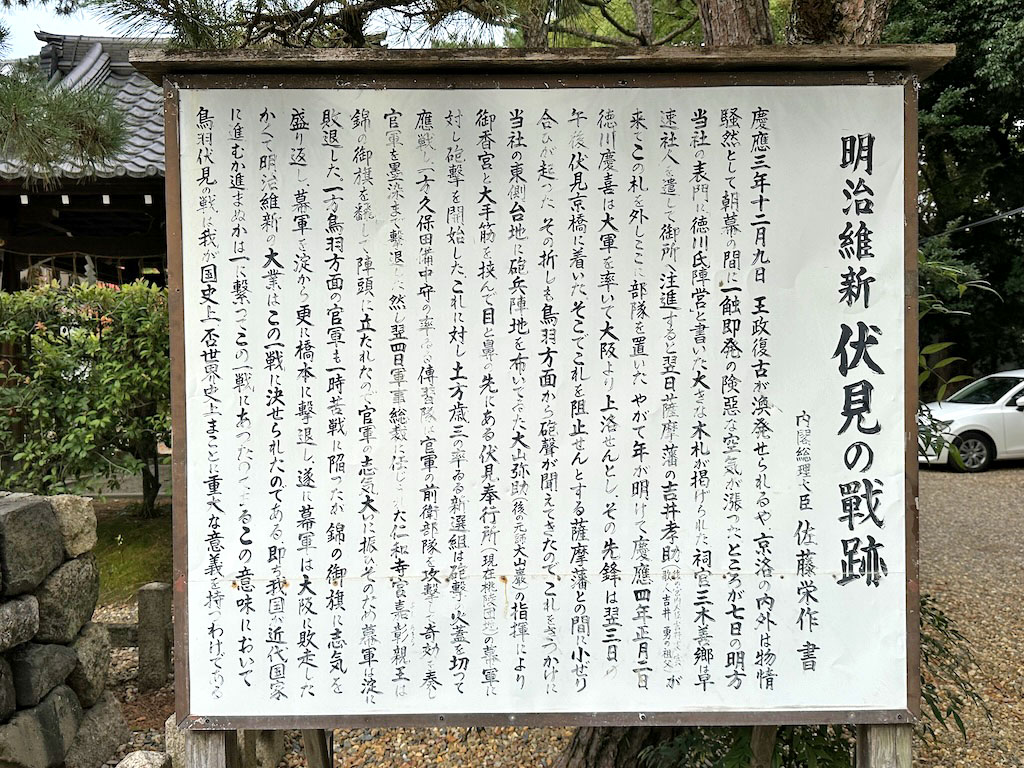 明治維新伏見の戦跡
内閣総理大臣 佐藤栄作書
慶應三年十二月九日 王政復古が渙発せられるや京洛の内外は物情
騒然として朝幕の間に一触即発の険悪な空気が漲つたところが七日の明方
当社の表門に徳川氏陣営と書いた大きな木札が掲げられた祠官三木善郷は早
速社人を遣して御所に注進すると翌日薩摩藩の吉井孝助が
来てこの札を外しここに部隊を置いたやがて年が明けて慶應四年正月二日
徳川慶喜は大軍を率いて大阪より上洛せんとし、その先鋒は翌三日の
午後伏見京橋に着いた。そこでこれを阻止せんとする薩摩藩との間に小ぜり
合ひが起つた、その折しも鳥羽方面から砲聲が聞えてきたので、これをきつかけに
当社の東側台地に砲兵陣地を布いてゐた大山弥助(後の元師大山巌)の指揮により
御香宮と大手筋を挟んで目と鼻の先にある伏見奉行所(現在桃陵団地)の幕軍に
対し砲撃を開始した、これに対し土方歳三の率ゐる新選組は砲撃の火蓋を切つて
應戦し一方久保田備中守の率ゐる傳習隊は官軍の前衛部隊を攻撃し奇効を奏し
官軍を墨染まで撃退した然し翌四日軍事総裁に任じられた仁和寺宮嘉彰親王は
錦の御旗を飜して陣頭に立たれたので官軍の志気大いに振いそのため幕軍は淀に
敗退した、一方鳥羽方面の官軍も一時苦戦に陥つたが錦の御旗に志気を
盛り返し、幕軍を淀から更に橋本に撃退し、遂に幕軍は大阪に敗走した
かくて明治維新の大業はこの一戦に決せられたのである、即ち我国が近代国家
に進むか進まぬかは一に繋つてこの一戦にあつたのであるこの意味において
鳥羽伏見の戦は我が国史上、否世界史上まことに重大な意義を持つわけである